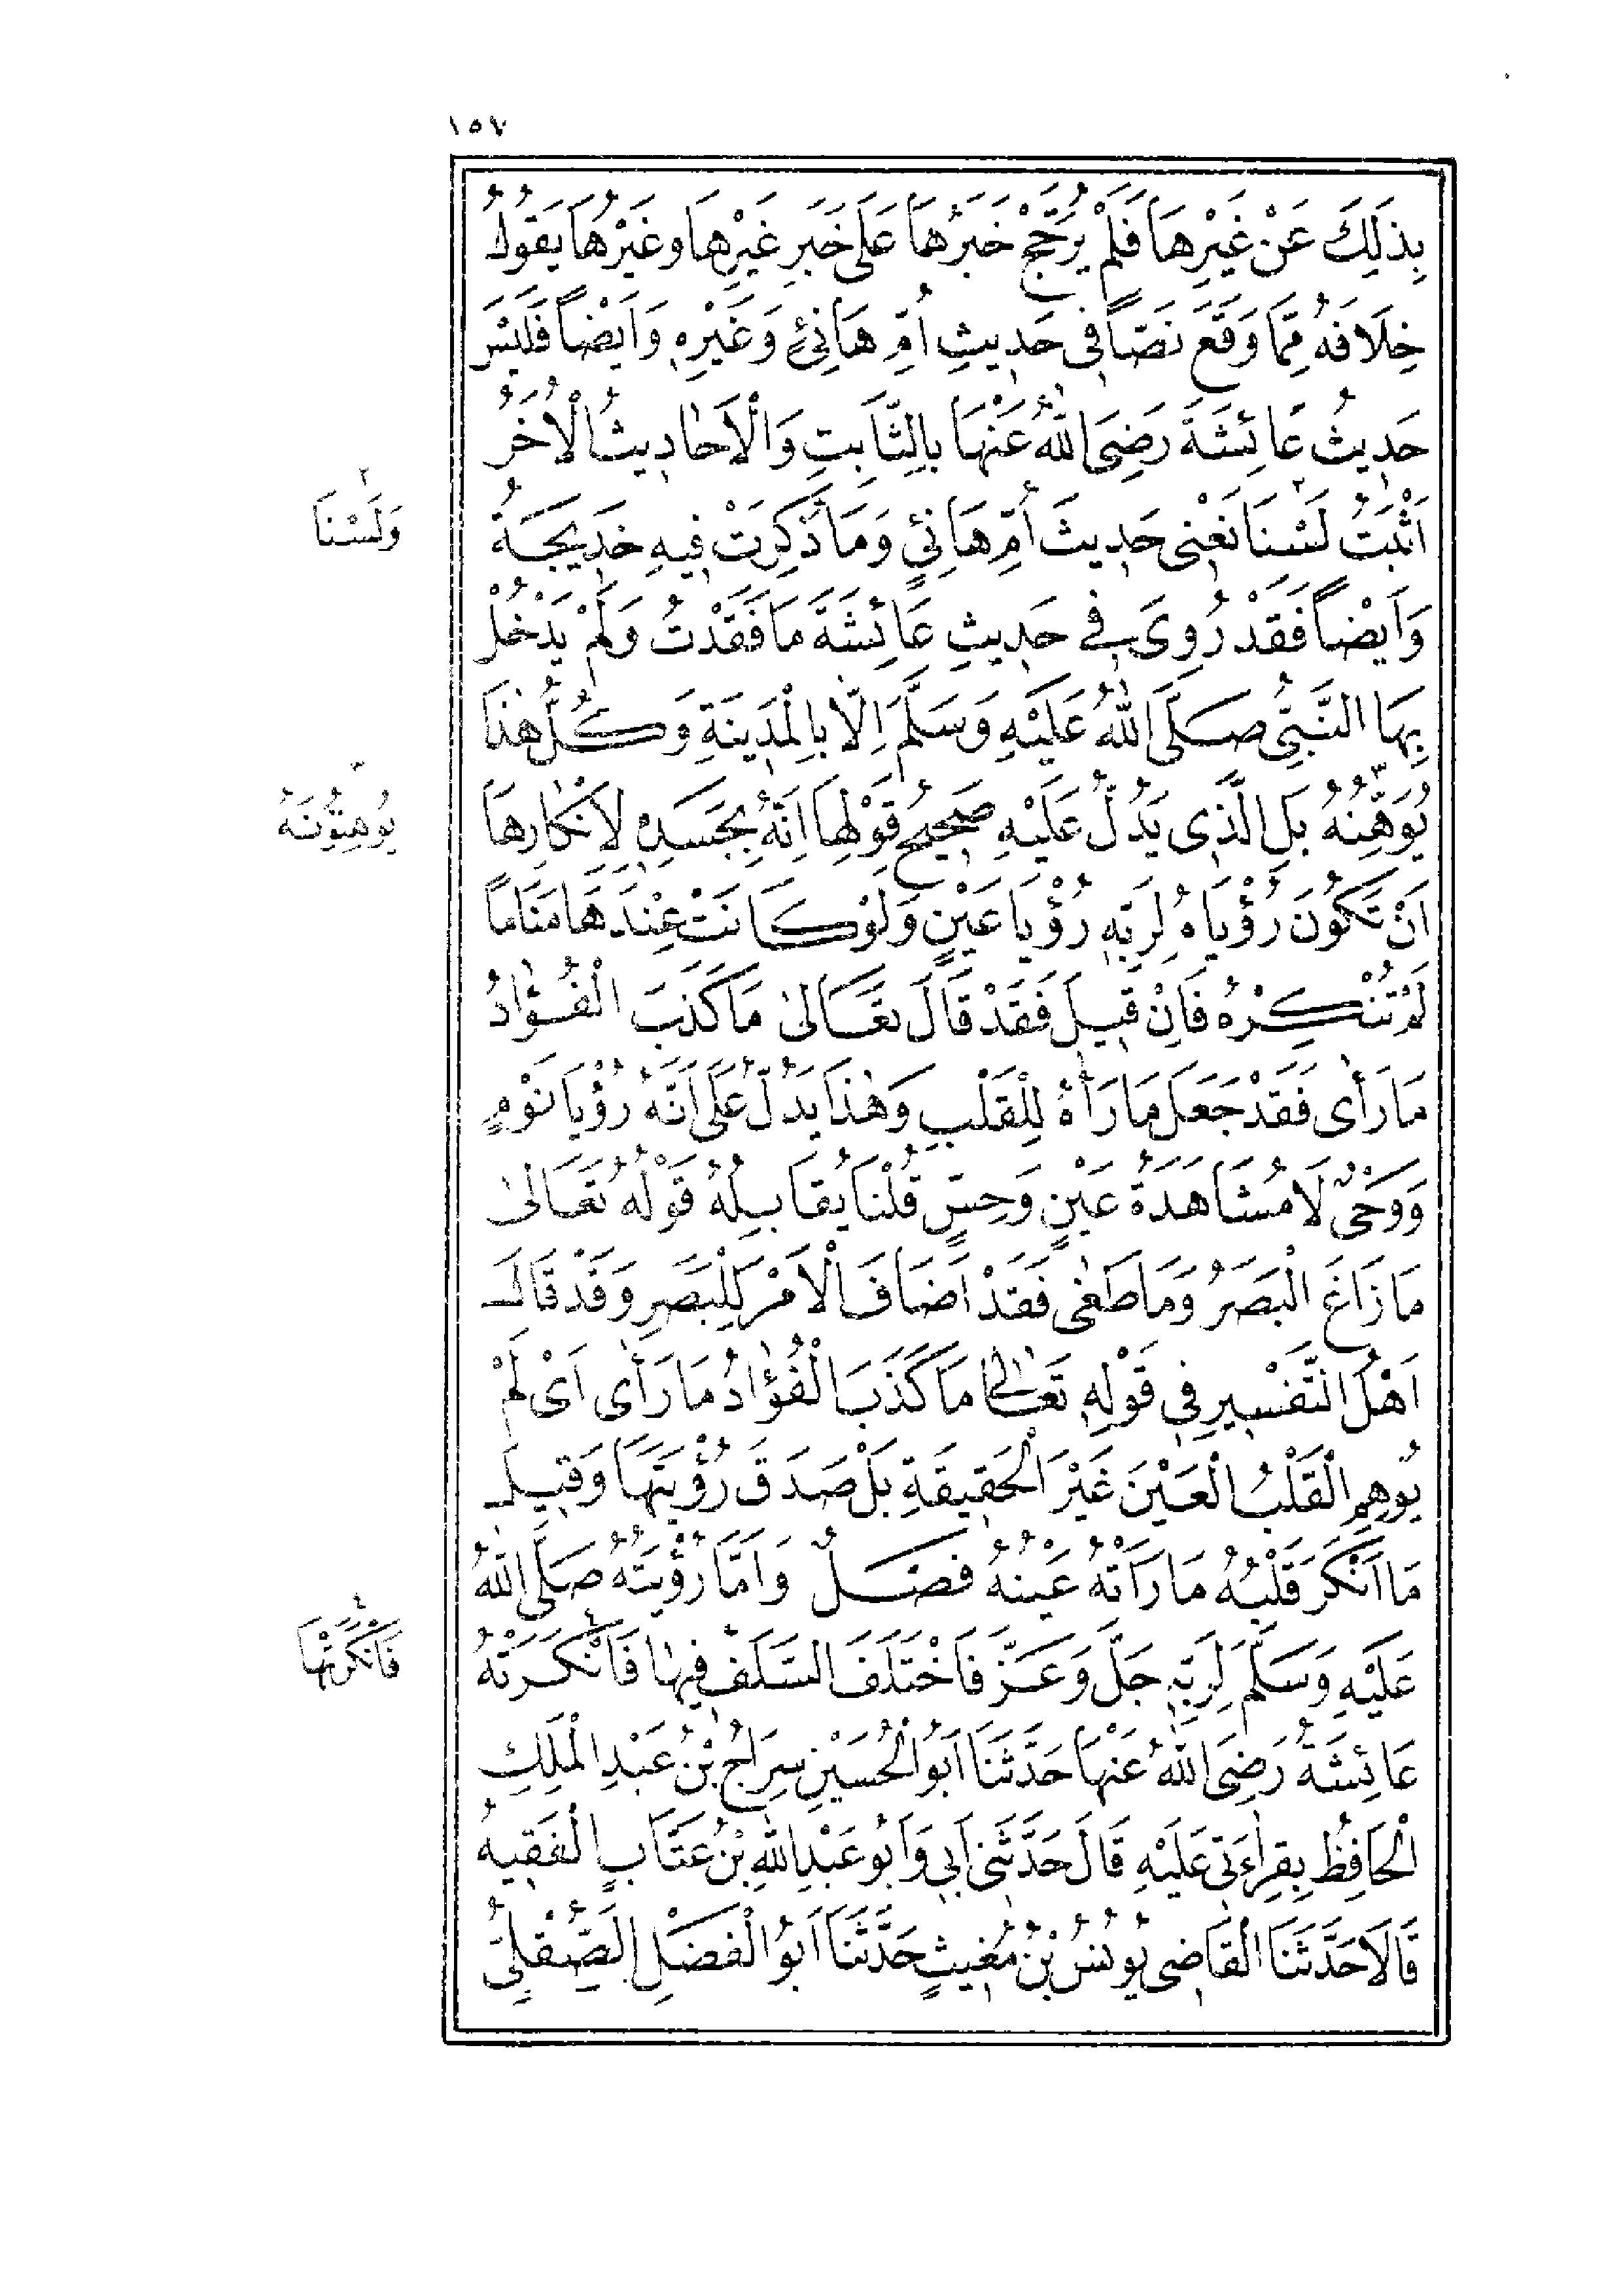 ١٥٧
بِذٰلِكَ عَنْ غَيْرِهَا فَلَمْ يُرَجَّحْ خَبَرُهَا عَلَى خَبَرِ غَيْرِهَا وَغَيْرُهَا يَقُولُ
خِلَافَهُ مِمَّا وَقَعَ نَصًّا فِى حَدِيثِ اُمِّ هَانِئٍ وَغَيْرِهِ وَاَيْضًا فَلَيْسَ
حَدِيثُ عَائِشَةَ رَضِىَ اللّٰهُ عَنْهَا بِالثَّابِتِ وَالْاَحَادِيثُ الْاُخَرُ
اَثْبَتُ لَسْنَا٢ نَعْنِى حَدِيثَ اُمِّ هَانِئٍ وَمَا ذُكِرَتْ فِيهِ خَدِيجَةُ
وَلَسْنَا ٢
وَاَيْضًا فَقَدْ رُوِىَ فِى حَدِيثِ عَائِشَةَ مَا فَقَدْتُ وَلَمْ يَدْخُلْ
بِهَا النَّبِىُّ صَلَّى اللّٰهُ عَلَيْهِ وَسَلَّمَ اِلَّا بِالْمَدِينَةِ وَكُلُّ هٰذَا
يُوَهِّنُهُ٣ بَلِ الَّذِى يَدُلُّ عَلَيْهِ صَحِيحُ قَوْلِهَا اِنَّهُ بِجَسَدِهِ لِاِنْكَارِهَا
يُوهِنُونَهُ ٣
اَنْ تَكُونَ رُؤْيَاهُ لِرَبِّهِ رُؤْيَا عَيْنٍ وَلَوْ كَانَتْ عِنْدَهَا مَنَامًا
لَمْ تُنْكِرْهُ فَاِنْ قِيلَ فَقَدْ قَالَ تَعَالٰى مَا كَذَبَ الْفُؤَادُ
مَا رَاٰى فَقَدْ جَعَلَ مَا رَاٰهُ لِلْقَلْبِ وَهٰذَا يَدُلُّ عَلَى اَنَّهُ رُؤْيَا نَوْمٍ
وَوَحْىٌ لَا مُشَاهَدَةُ عَيْنٍ وَحِسٍّ قُلْنَا يُقَابِلُهُ قَوْلُهُ تَعَالٰى
مَا زَاغَ الْبَصَرُ وَمَا طَغٰى فَقَدْ اَضَافَ الْاَمْرَ لِلْبَصَرِ وَقَدْ قَالَ
اَهْلُ التَّفْسِيرِ فِى قَوْلِهِ تَعَالٰى مَا كَذَبَ الْفُؤَادُ مَا رَاٰى اَىْ لَمْ
يُوهِمِ الْقَلْبُ الْعَيْنَ غَيْرَ الْحَقِيقَةِ بَلْ صَدَقَ رُؤْيَتَهَا وَقِيلَ
مَا اَنْكَرَ قَلْبُهُ مَا رَاَتْهُ عَيْنُهُ فَصْلٌ وَاَمَّا رُؤْيَتُهُ صَلَّى اللّٰهُ
عَلَيْهِ وَسَلَّمَ لِرَبِّهِ جَلَّ وَعَزَّ فَاخْتَلَفَ السَّلَفُ فِيهَا فَاَنْكَرَتْهُ٤
فَاَنْكَرَتْهَا ٤
عَائِشَةُ رَضِىَ اللّٰهُ عَنْهَا حَدَّثَنَا اَبُو الْحُسَيْنِ سِرَاجُ بْنُ عَبْدِ الْمَلِكِ
الْحَافِظُ بِقِرَاءَتِى عَلَيْهِ قَالَ حَدَّثَنِى اَبِى وَاَبُو عَبْدِ اللّٰهِ بْنُ عَتَّابٍ الْفَقِيهُ
قَالَا حَدَّثَنَا الْقَاضِى يُونُسُ بْنُ مُغِيثٍ حَدَّثَنَا اَبُو الْفَضْلِ الصِّقِلِّىُّ